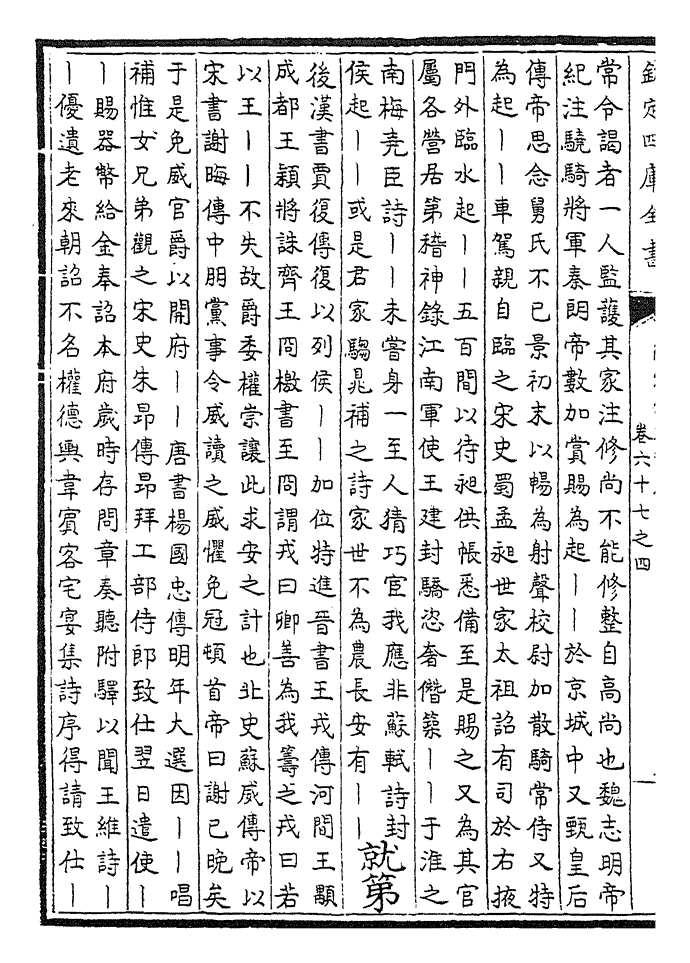 欽定四庫全書
卷六十七之四
常令謁者一人監護其家注修尚不能修整自高尚也魏志明帝
紀注驍騎將軍秦朗帝數加賞賜為起丨丨於京城中又甄皇后
傳帝思念舅氏不已景初末以暢為射聲校尉加散騎常侍又特
為起丨丨車駕親自臨之宋史蜀孟昶世家太祖詔有司於右掖
門外臨水起丨丨五百間以待昶供帳悉備至是賜之又為其官
屬各營居第稽神錄江南軍使王建封驕恣奢僭築丨丨于淮之
南梅堯臣詩丨丨未嘗身一至人猜巧宦我應非蘇軾詩封
侯起丨丨或是君家騶晁補之詩家世不為農長安有丨丨
就第
後漢書賈復傳復以列侯丨丨加位特進晉書王戎傳河間王顒
成都王穎將誅齊王冏檄書至冏謂戎曰卿善為我籌之戎曰若
以王丨丨不失故爵委權崇讓此求安之計也北史蘇威傳帝以
宋書謝晦傳中朋黨事令威讀之威懼免冠頓首帝曰謝已晚矣
于是免威官爵以開府丨丨唐書楊國忠傳明年大選因丨丨唱
補惟女兄弟觀之宋史朱昂傳昂拜工部侍郎致仕翌日遣使丨
丨賜器幣給金奉詔本府歲時存問章奏聽附驛以聞王維詩丨
丨優遺老來朝詔不名權德輿韋賓客宅宴集詩序得請致仕丨